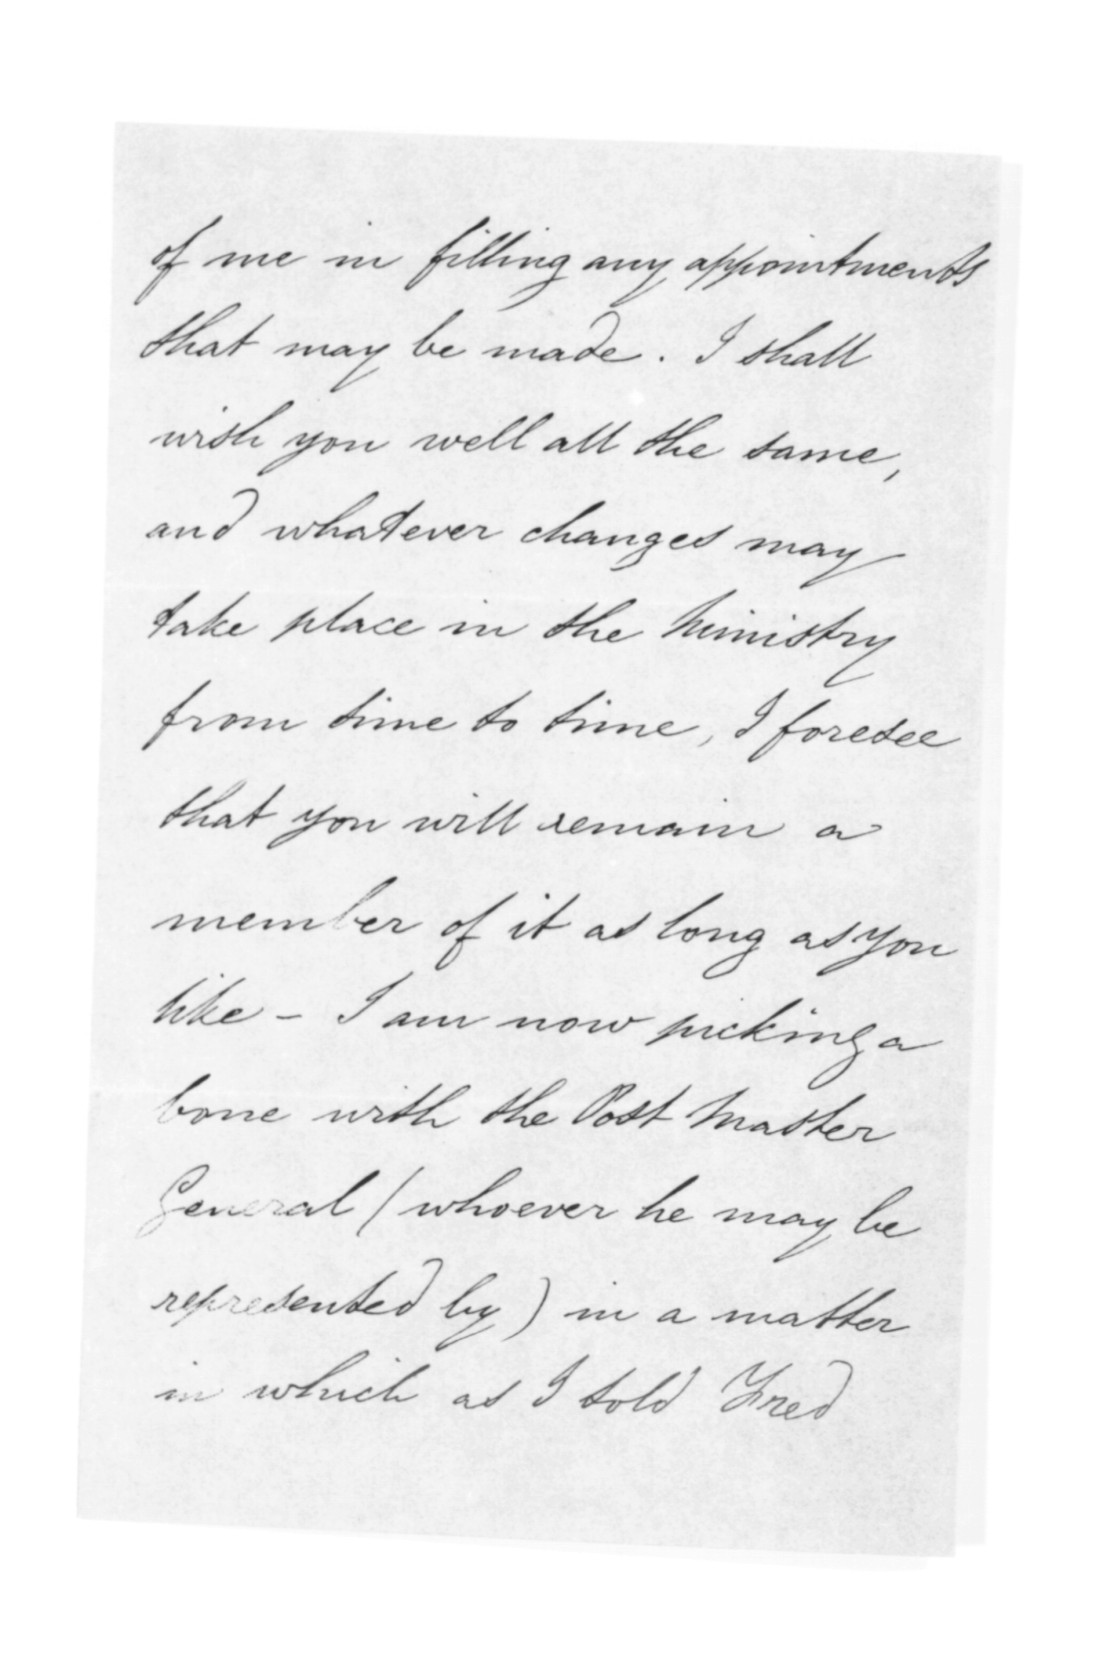 of me in filling any appointments
that may be made. I shall
wish you well all the same,
and whatever changes may
take place in the Ministry
from time to time, I foresee
that you will remain a
member of it as long as you
like - I am now picking a
bone with the Post Master
General (whoever he may be
represented by) in a matter
in which as I told Fred